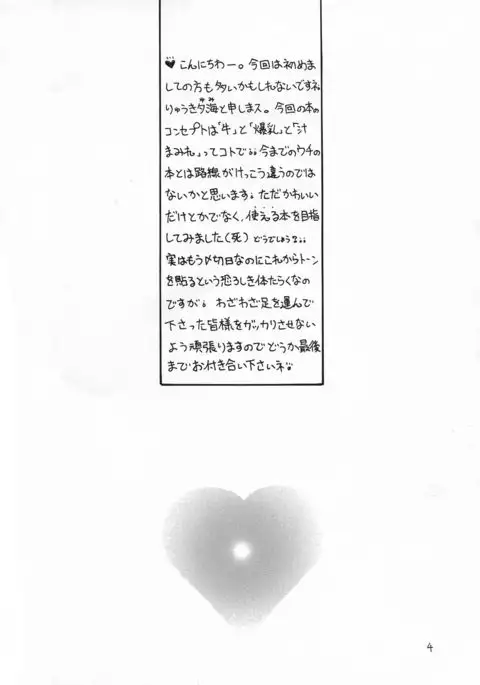 ♥こんにちわー。今回は初めま
しての方も多いかもしれないですネ
りゅうき夕海と申しまス。今回の本の
ゆみ
コンセプトは「牛」と「爆乳」と「汁
まみれ」ってコトで。今までのウチの
本とは路線がけっこう違うのでは
ないかと思います。ただかわいい
だけとかでなく、使える本を目指
してみました(死)どうでしょうな。
実はもう〆切日なのにこれからトーン
を貼るという恐ろしき体たらくなの
ですが。わざわざ足を運んで
下さった皆様をガッカリさせない
よう頑張りますのでどうか最後
までお付き合い下さいネ。
4